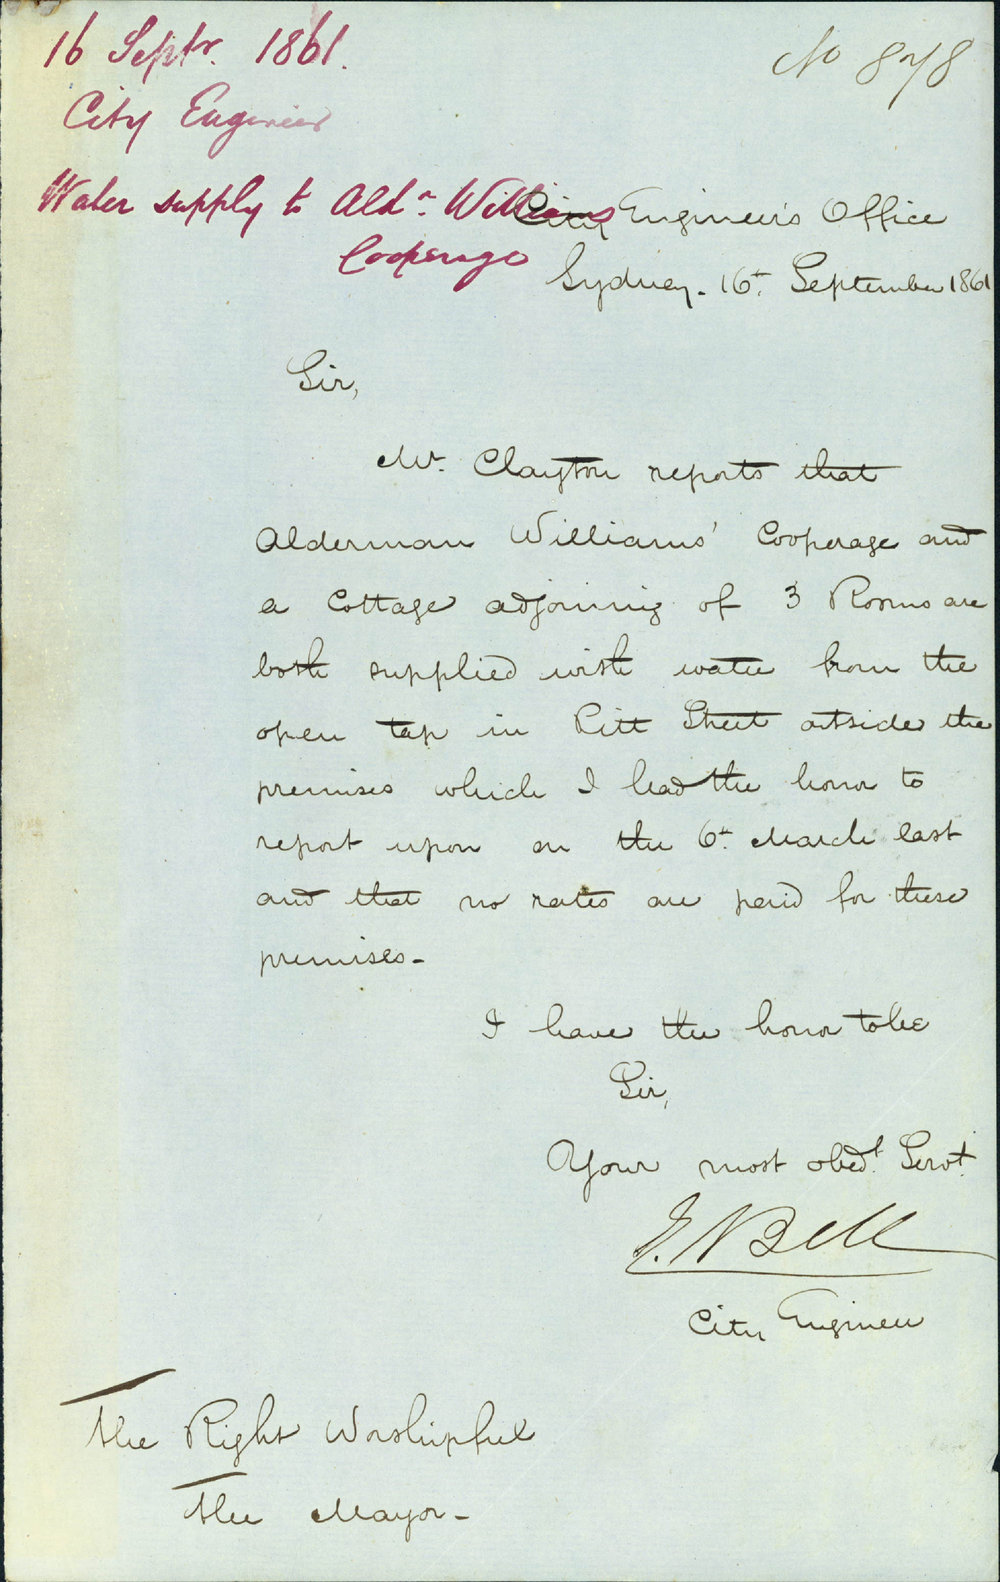 16 Septr. 1861.
No 878
City Engineer
Water supply to Aldr. Williams
Cooperage
City Engineer's Office
Sydney. 16t. September 1861
Sir,
Mr. Clayton reports that
Alderman Williams' Cooperage and
a Cottage adjoining of 3 Rooms are
both supplied with water from the
open tap in Pitt Street outside the
premises which I had the honor to
report upon on the 6t. March last
and that no rates are paid for these
premises-
I have the honor to be
Sir,
Your most obedt. Servt.
E. N Bell
City Engineer
The Right Worshipful
The Mayor-